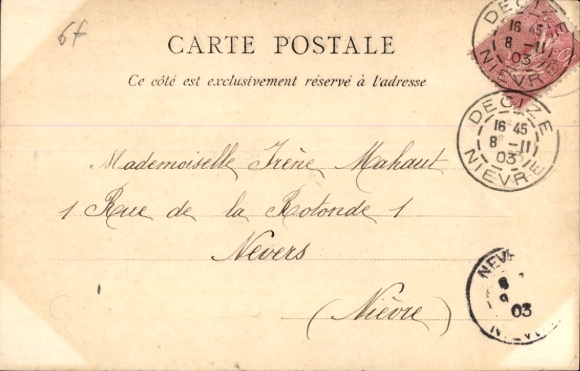 6f
CARTE POSTALE
Ce côté est exclusivement réservé à l'adresse
DECIZE
16 45
8 -11
03
NIÈVRE
DECIZE
16 45
8 -11
03
NIÈVRE
Mademoiselle Irène Mahaut
1 Rue de la Rotonde 1
Nevers
(Nièvre)
NEVE
03